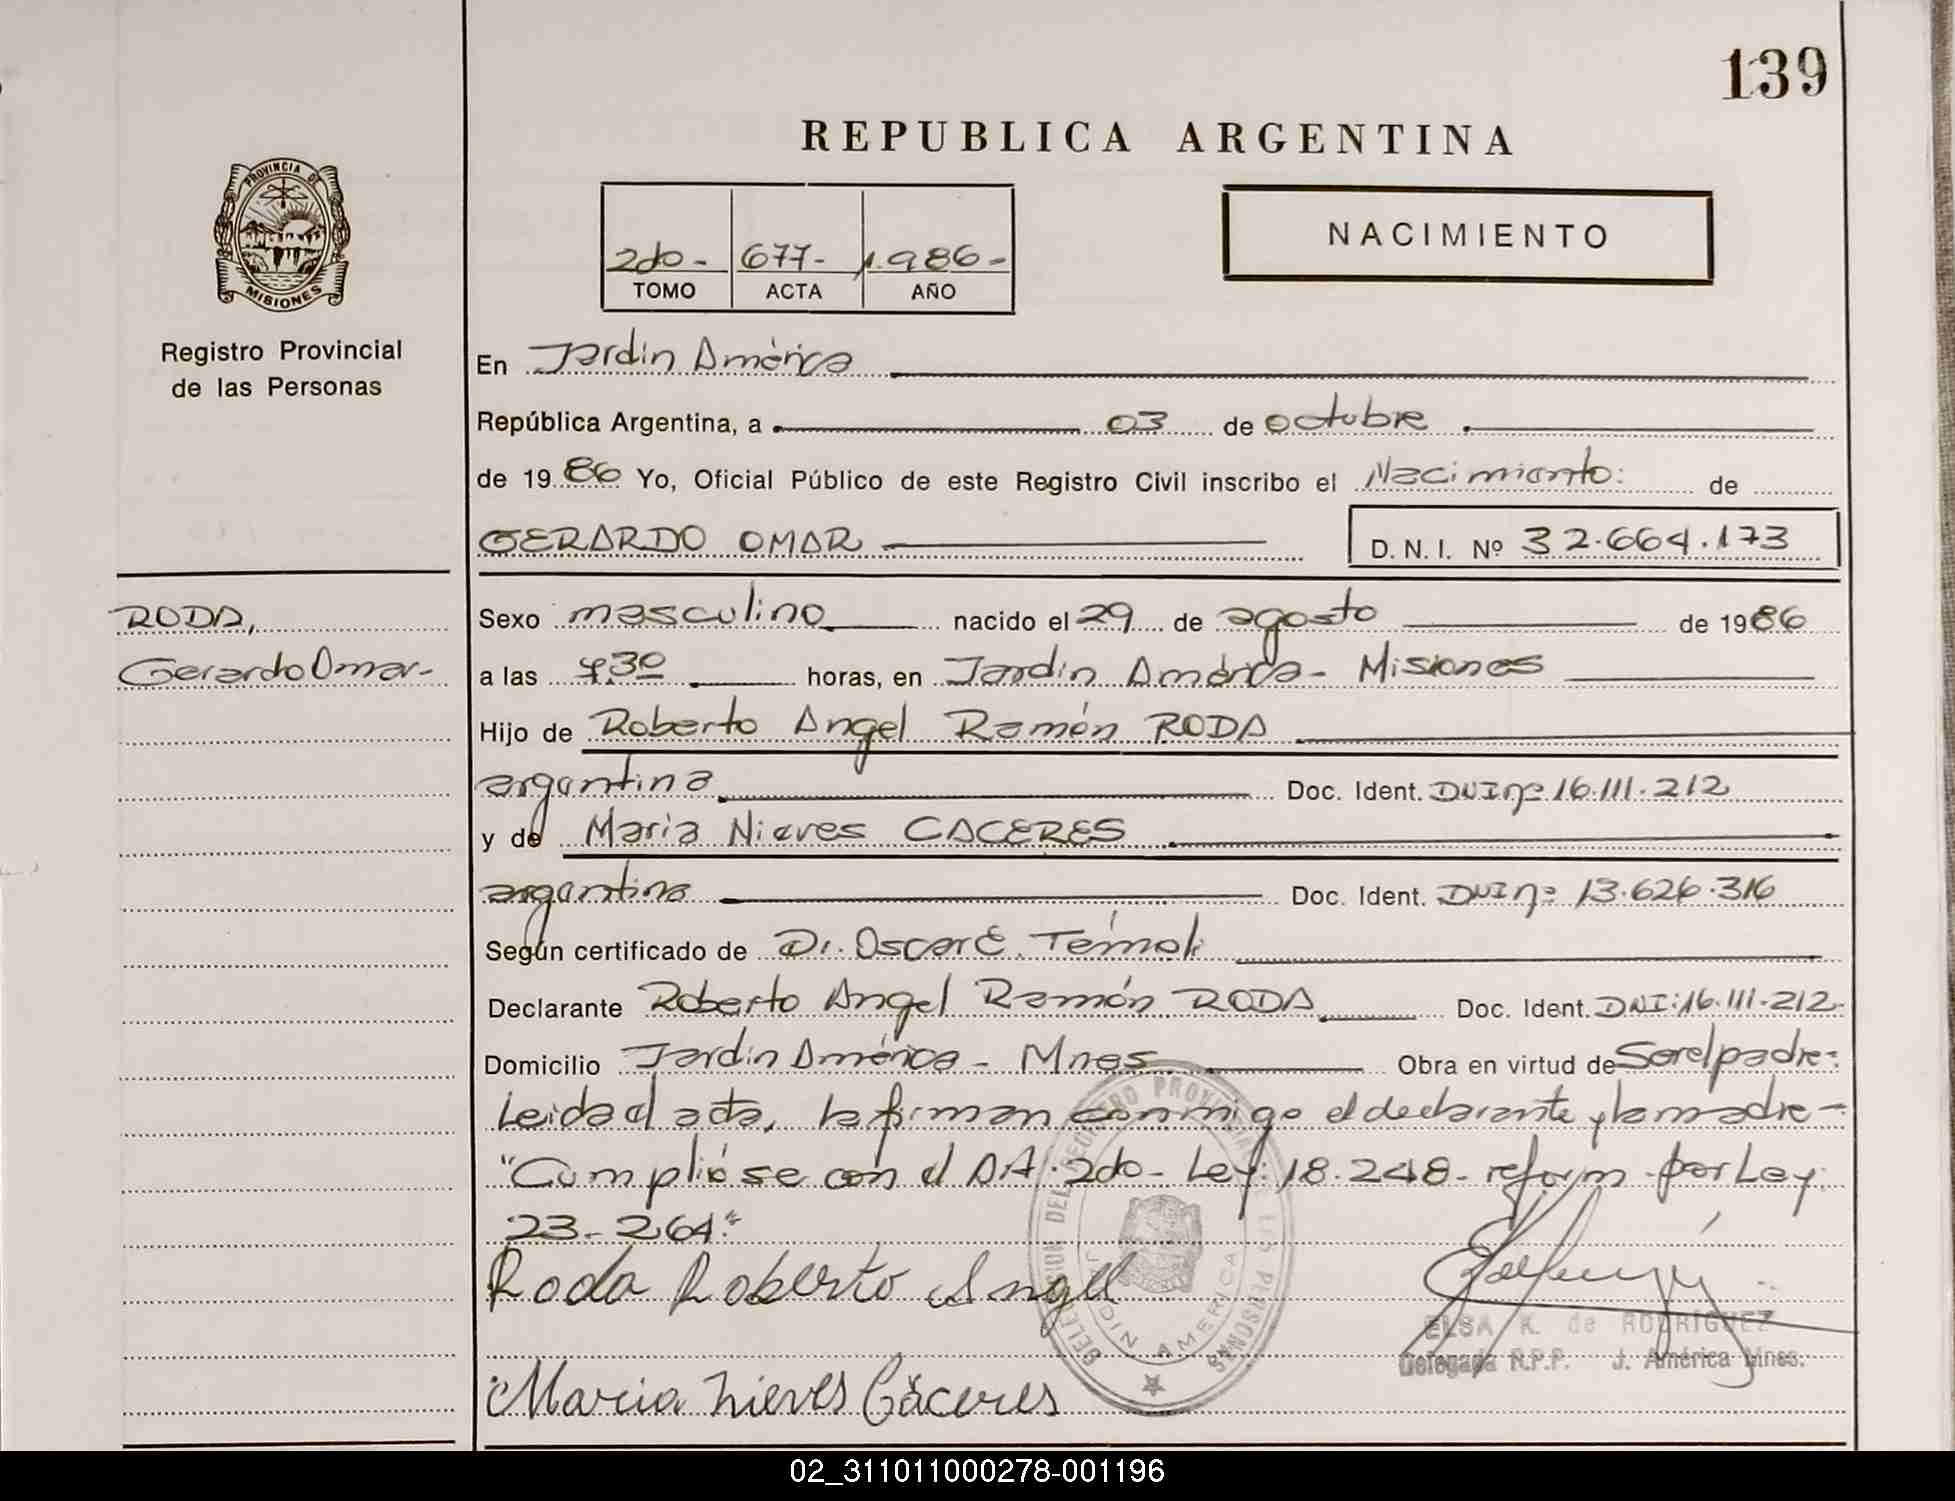 139
REPUBLICA ARGENTINA
PROVINCIA DE
MISIONES
Registro Provincial
de las Personas
2do - 677- 1.986-
TOMO ACTA AÑO
NACIMIENTO
En Jardin América
República Argentina, a 03 de octubre
de 1986 Yo, Oficial Público de este Registro Civil inscribo el Nacimiento: de
GERARDO OMAR D. N. I. Nº 32.664.173
RODA,
Gerardo Omar-
Sexo masculino nacido el 29 de agosto de 1986
a las 4.30 horas, en Jardin América - Misiones
Hijo de Roberto Angel Ramón RODA
argentina Doc. Ident. DNI nº 16.111.212
y de Maria Nieves CACERES
argentina Doc. Ident. DNI nº 13.626.316
Según certificado de Dr. Oscar E.
Declarante Roberto Angel Ramón RODA Doc. Ident. DNI: 16.111.212
Domicilio Jardin América - Mnes Obra en virtud de Ser el padre:
Leida el acta, la firman conmigo el declarante y la madre -
"Cumplióse con el Art. 2do - Ley: 18.248 - reform. por Ley:
23.264"
Roda Roberto Angel
Maria Nieves Cáceres
DELEGACION DEL REGISTRO PROVINCIAL DE LAS PERSONAS
JARDIN AMERICA
ELSA K. de RODRIGUEZ
Delegada R.P.P. J. América Mnes.
02_311011000278-001196